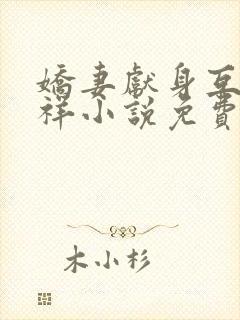 嬌妻獻身互
祥小說免費
木小杉